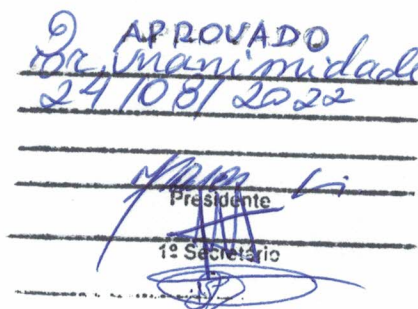 APROVADO
Por unanimidade
24/08/2022
Presidente
1º Secretário